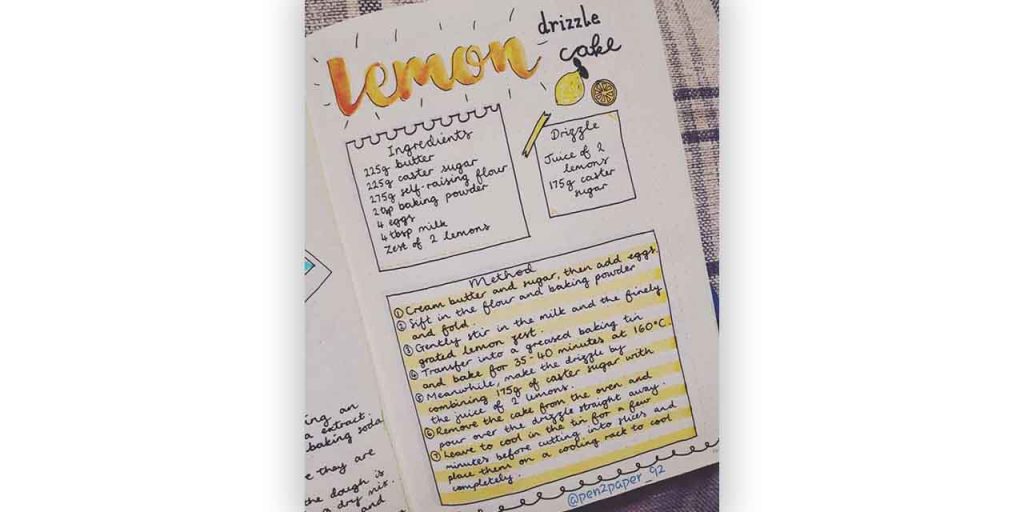 lemon drizzle
cake
Ingredients
225g butter
225g caster sugar
275g self-raising flour
2 tsp baking powder
4 eggs
4 tbsp milk
Zest of 2 lemons
Drizzle
Juice of 2
lemons
175g caster
sugar
Method
① Cream butter and sugar, then add eggs.
② Sift in the flour and baking powder
and fold.
③ Gently stir in the milk and the finely
grated lemon zest.
④ Transfer into a greased baking tin
and bake for 35-40 minutes at 160°C.
⑤ Meanwhile, make the drizzle by
combining 175g of caster sugar with
the juice of 2 lemons.
⑥ Remove the cake from the oven and
pour over the drizzle straight away.
⑦ Leave to cool in the tin for a few
minutes before cutting into slices and
place them on a cooling rack to cool
completely.
@pen2paper_92
an
extract.
baking soda
they are
the dough is
a dry mix.
and